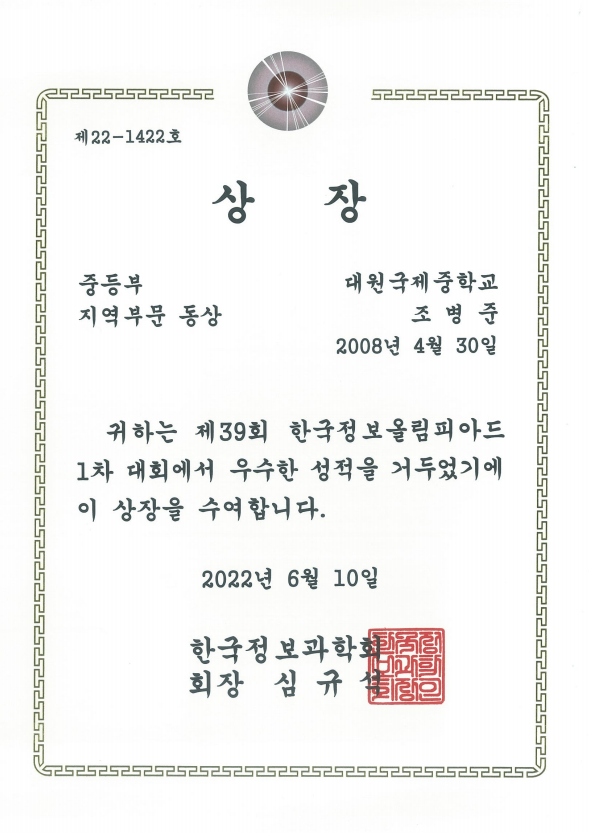 제22-1422호
상 장
중등부
지역부문 동상
대원국제중학교
조 병 준
2008년 4월 30일
귀하는 제39회 한국정보올림피아드
1차 대회에서 우수한 성적을 거두었기에
이 상장을 수여합니다.
2022년 6월 10일
한국정보과학회
회장 심 규 석